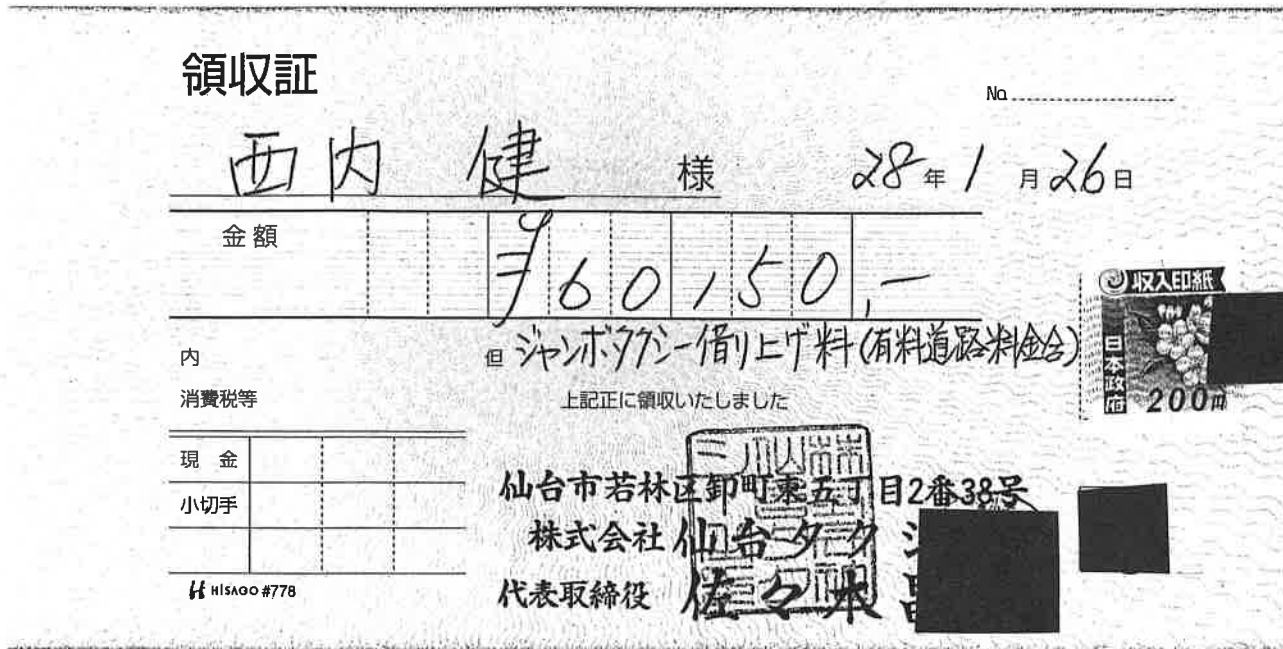 領収証
No.
西内 健 様 28年1月26日
金額 ¥60,150,-
内 但 ジャンボタクシー借り上げ料(有料道路料金含)
消費税等 上記正に領収いたしました
収入印紙
日本政府
200円
現金
小切手
仙台市若林区卸町東五丁目2番38号
株式会社 仙台タクシ
代表取締役 佐々木
HISAGO #778